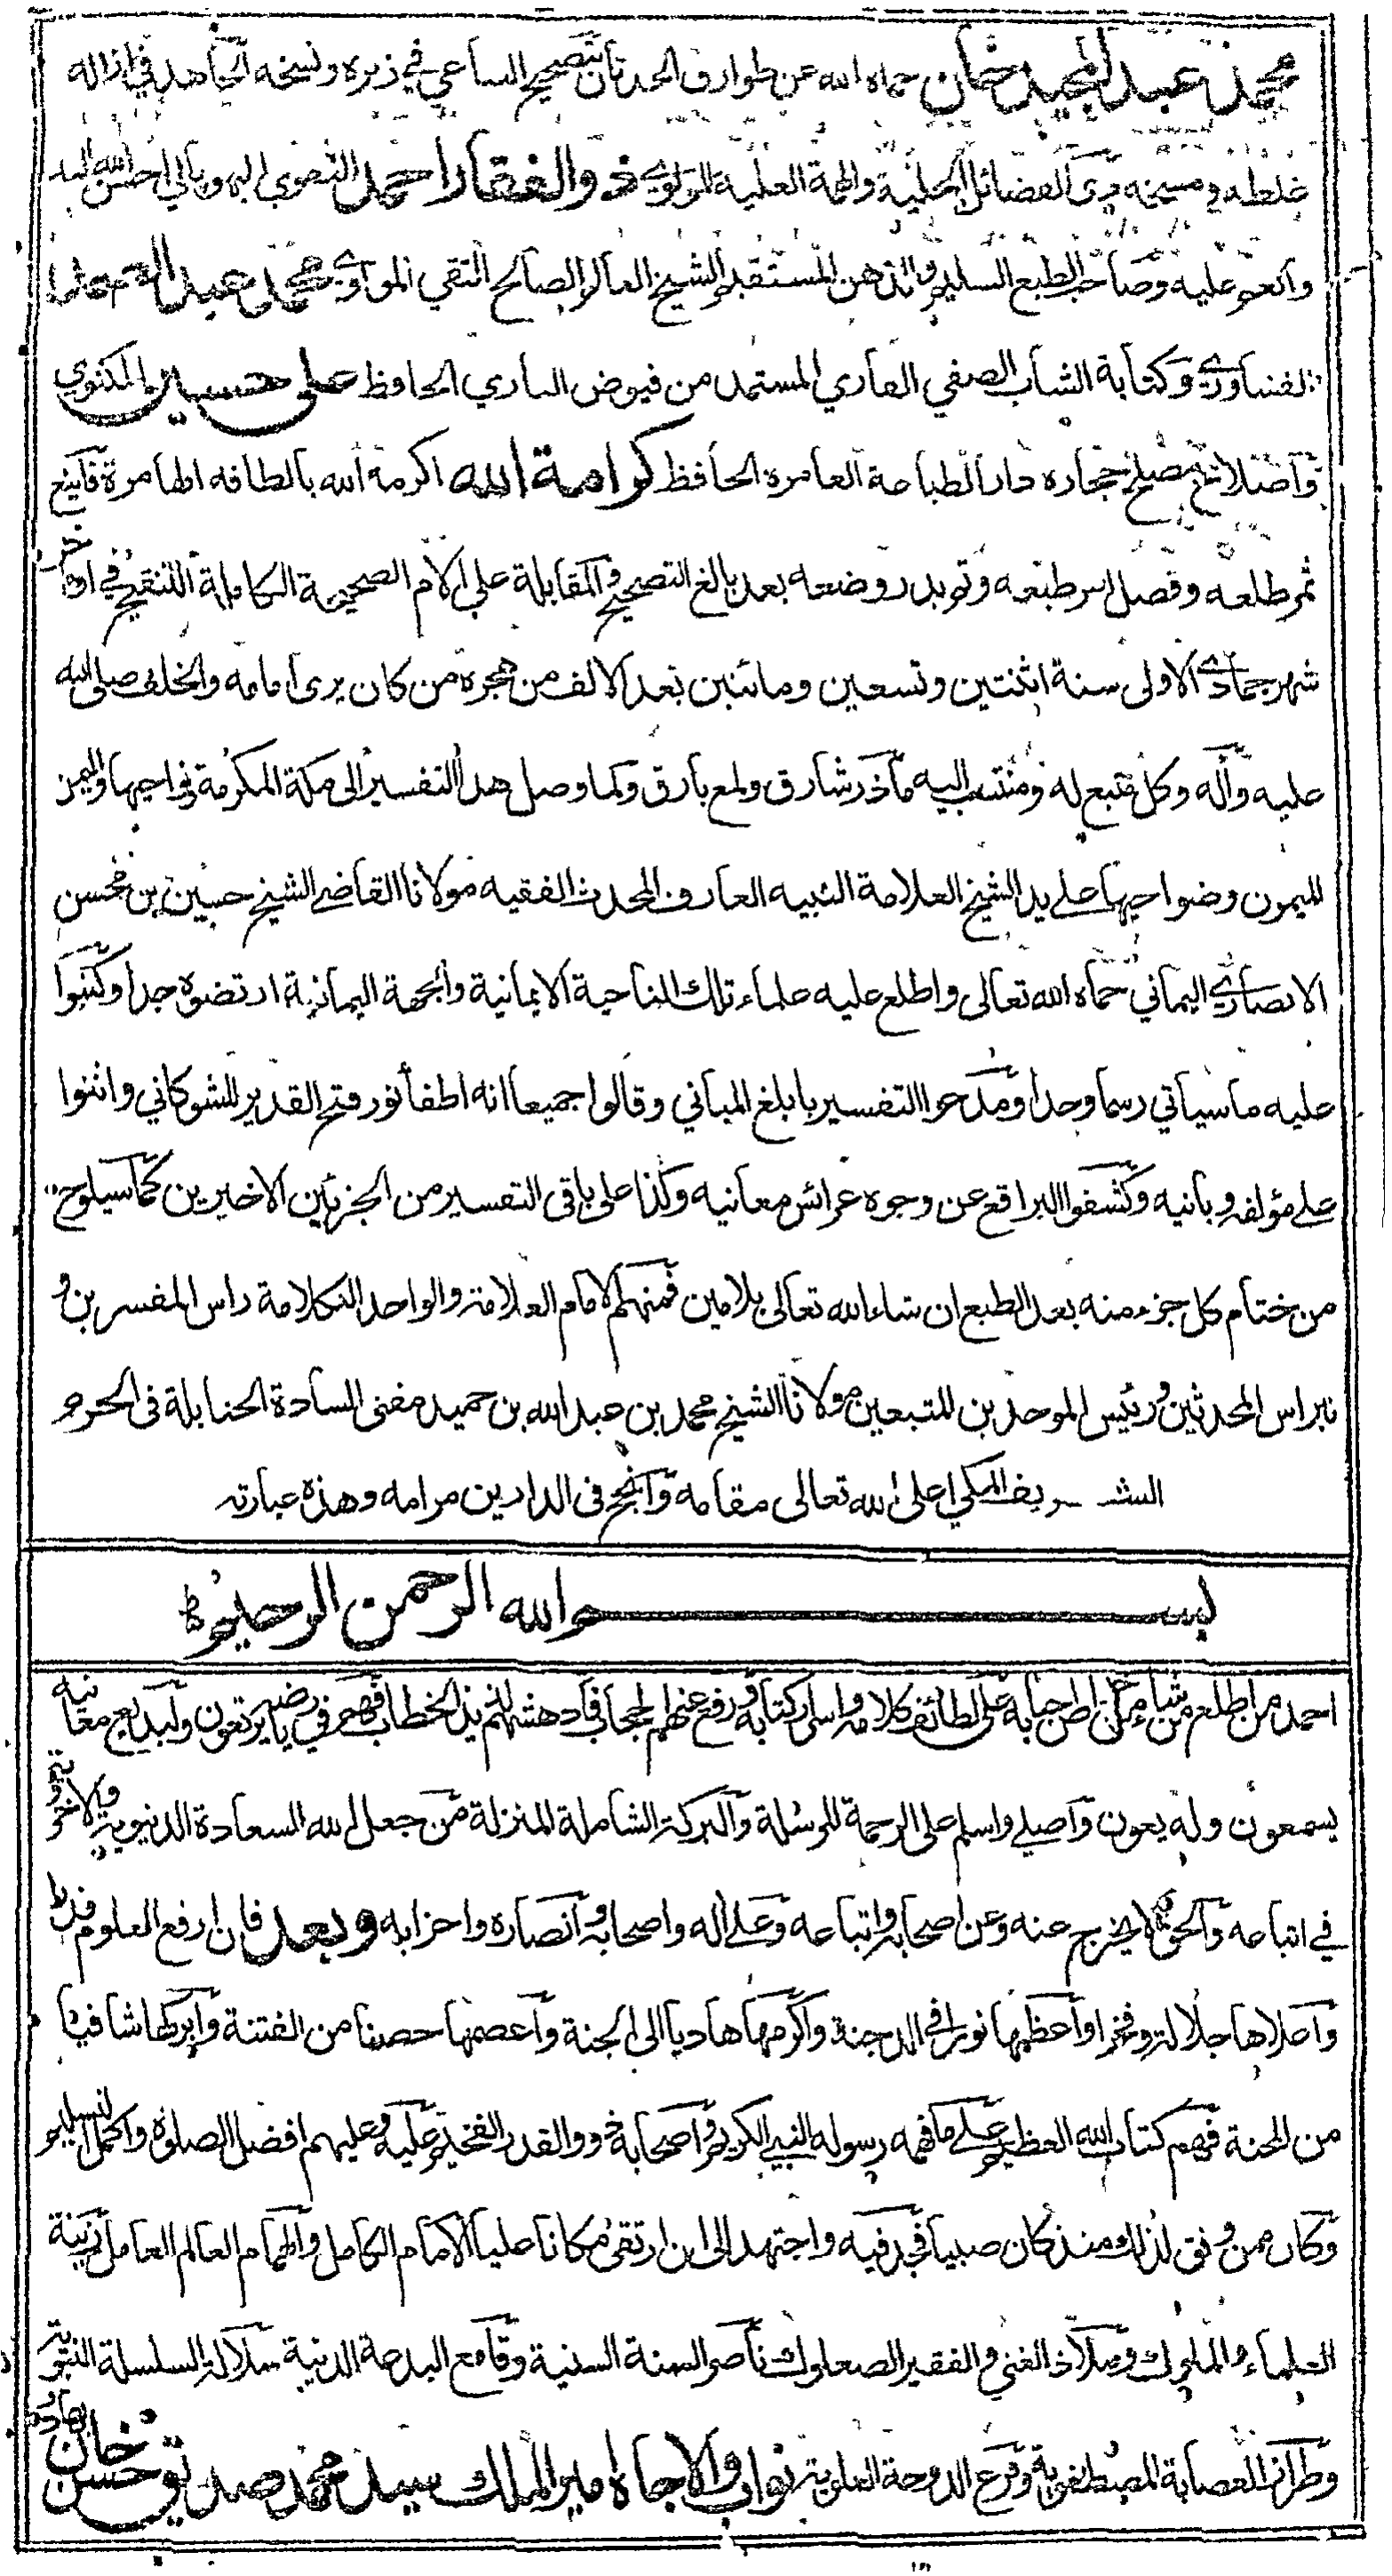 محمد عبد المجيد خان حماه الله عن طوارق الحدثان بتصحيح الساعي في زبره ونسخه الجاهد في ازالة
غلطه ومسخه ذي الفضائل الجلية والهمة العلية المولوي ذو الفقار احمد النقوي البهوپالي احسن الله اليه
وانعم عليه وصاحب الطبع السليم والذهن المستقيم الشيخ العالم الصالح التقي المولوي محمد عبد الصمد
الفشاوري وكتابة الشاب الصفي القاري المستمد من فيوض الباري الحافظ علي حسين اللكنوي
واصلاح مصلح حجارة دار الطباعة العامرة الحافظ كرامة الله اكرمه الله بالطافه الهامرة فاينع
ثمر طلعه وفصل امر طبعه وتم بدر وضعه بعد بالغ التصحيح والمقابلة على الام الصحيحة الكاملة التنقيح في اواخر
شهر جمادى الاولى سنة اثنتين وتسعين ومائتين بعد الالف من هجرة من كان يرى امامه والخلف صلى الله
عليه وآله وكل متبع له ومنتسب اليه ما ذر شارق ولمع بارق ولما وصل هذا التفسير الى مكة المكرمة ونواحيها واليمن
الميمون وضواحيها على يد الشيخ العلامة النبيه العارف المحدث الفقيه مولانا القاضي الشيخ حسين بن محسن
الانصاري اليماني حماه الله تعالى واطلع عليه علماء تلك الناحية الايمانية والجهة اليمانية ارتضوه جدا وكتبوا
عليه ما سيأتي رسما وحدا ومدحوا التفسير بابلغ المباني وقالوا جميعا انه اطفأ نور فتح القدير للشوكاني واثنوا
على مؤلفه وبانيه وكشفوا البراقع عن وجوه عرائس معانيه وكذا على باقي التفسير من الجزئين الاخيرين كما سيلوح
من ختام كل جزء منه بعد الطبع ان شاء الله تعالى بلامين فمنهم الامام العلامة والواحد التكلامة راس المفسرين و
نبراس المحدثين ورئيس الموحدين المتبعين مولانا الشيخ محمد بن عبد الله بن حميد مفتى السادة الحنابلة فى الحرم
الشريف المكي اعلى الله تعالى مقامه وانجح فى الدارين مرامه وهذه عبارته
بسم الله الرحمن الرحيم
احمد من اطلع من شاء من خواص احبابه على لطائف كلامه واسرار كتابه ورفع عنهم الحجاب فادهشهم لذيذ الخطاب فهم في رياضه يرتعون ولبدايع معانيه
يسمعون وله يعون واصلي واسلم على الرحمة المرسلة والبركة الشاملة المنزلة من جعل الله السعادة الدنيوية والاخروية
في اتباعه والحق لا يخرج عنه وعن اصحابه واتباعه وعلى آله واصحابه وانصاره واحزابه وبعد فان ارفع العلوم قدرا
واعلاها جلالة وفخرا واعظمها نورا في الدجنة واكرمها هاديا الى الجنة واعصمها حصنا من الفتنة وابركها شافيا
من المحنة فهم كتاب الله العظيم على ما فهمه رسوله النبي الكريم واصحابه ذوو القدر الفخيم عليه وعليهم افضل الصلوة واكمل التسليم
وكان ممن وفق لذلك منذ كان صبيا فجد فيه واجتهد الى ان ارتقى مكانا عليا الامام الكامل والهمام العالم العامل زينة
العلماء والملوك وملاذ الغني والفقير الصعلوك ناصر السنة السنية وقامع البدعة الدنية سلالة السلسلة النبوية
وطراز العصابة المصطفوية وفرع الدوحة العلوية نواب والاجاه امير الملك سيد محمد صديق حسن خان بهادر